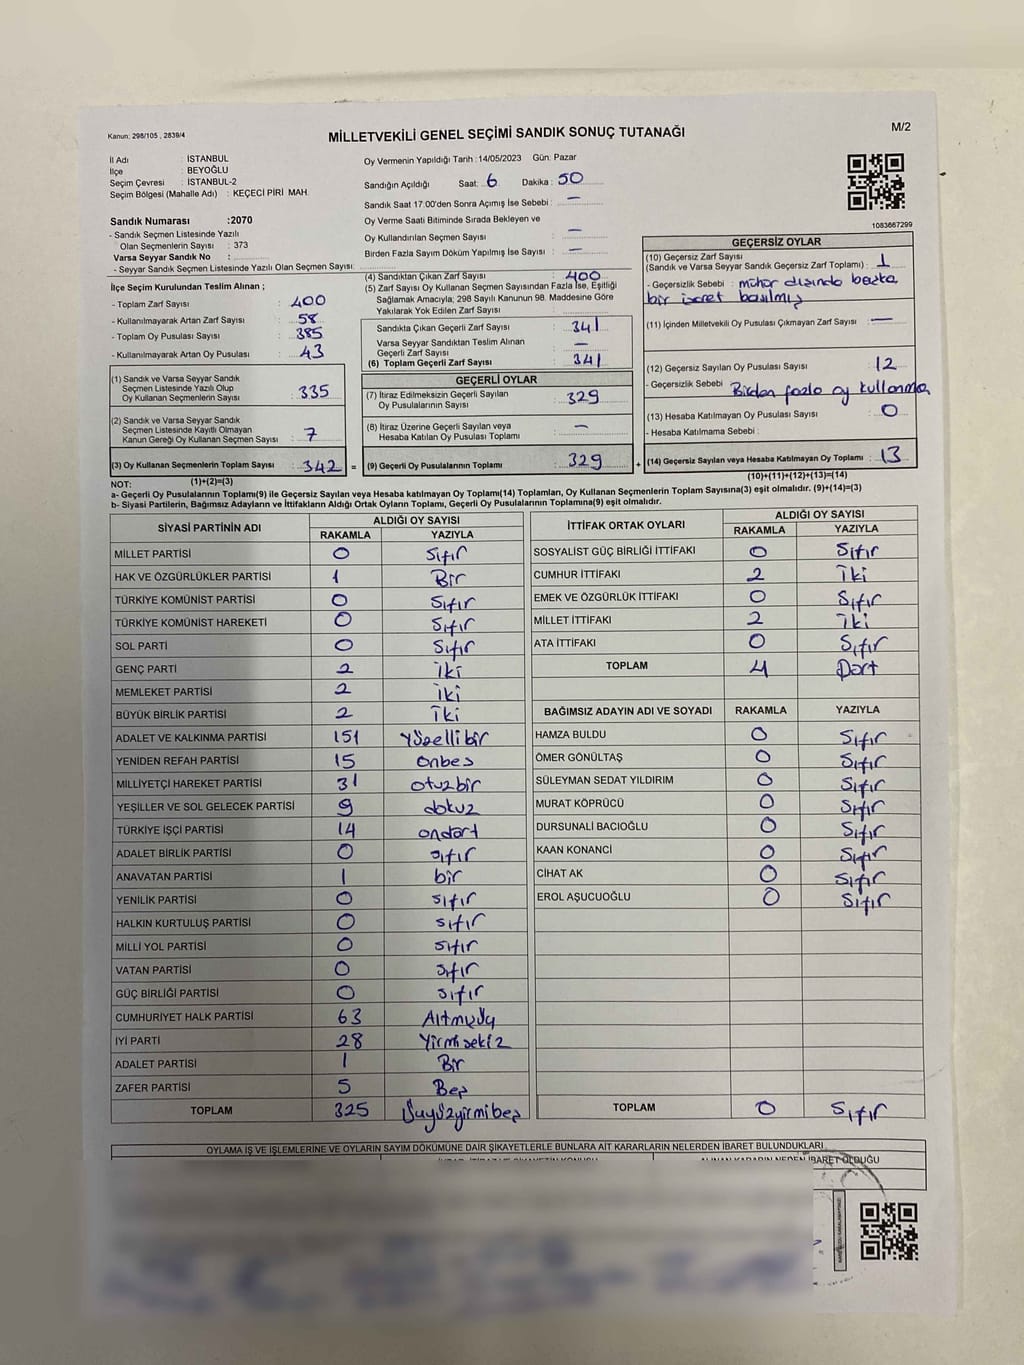 Kanun: 298/105 , 2839/4
M/2
MİLLETVEKİLİ GENEL SEÇİMİ SANDIK SONUÇ TUTANAĞI
İl Adı : İSTANBUL
İlçe : BEYOĞLU
Seçim Çevresi : İSTANBUL-2
Seçim Bölgesi (Mahalle Adı) : KEÇECİ PİRİ MAH.
Sandık Numarası :2070
- Sandık Seçmen Listesinde Yazılı
Olan Seçmenlerin Sayısı : 373
Varsa Seyyar Sandık No :
- Seyyar Sandık Seçmen Listesinde Yazılı Olan Seçmen Sayısı:
İlçe Seçim Kurulundan Teslim Alınan ;
- Toplam Zarf Sayısı : 400
- Kullanılmayarak Artan Zarf Sayısı : 58
- Toplam Oy Pusulası : 385
- Kullanılmayarak Artan Oy Pusulası : 43
(1) Sandık ve Varsa Seyyar Sandık
Seçmen Listesinde Yazılı Olup
Oy Kullanan Seçmenlerin Sayısı : 335
(2) Sandık ve Varsa Seyyar Sandık
Seçmen Listesinde Kayıtlı Olmayan
Kanun Gereği Oy Kullanan Seçmen Sayısı : 7
(3) Oy Kullanan Seçmenlerin Toplam Sayısı : 342 =
(1)+(2)=(3)
Oy Vermenin Yapıldığı Tarih :14/05/2023 Gün: Pazar
Sandığın Açıldığı Saat: 6 Dakika : 50
Sandık Saat 17:00'den Sonra Açımış İse Sebebi : —
Oy Verme Saati Bitiminde Sırada Bekleyen ve
Oy Kullandırılan Seçmen Sayısı : —
Birden Fazla Sayım Döküm Yapılmış İse Sayısı : —
(4) Sandıktan Çıkan Zarf Sayısı : 400
(5) Zarf Sayısı Oy Kullanan Seçmen Sayısından Fazla İse, Eşitliği
Sağlamak Amacıyla; 298 Sayılı Kanunun 98. Maddesine Göre
Yakılarak Yok Edilen Zarf Sayısı :
Sandıkta Çıkan Geçerli Zarf Sayısı : 341
Varsa Seyyar Sandıktan Teslim Alınan
Geçerli Zarf Sayısı : —
(6) Toplam Geçerli Zarf Sayısı : 341
GEÇERLİ OYLAR
(7) İtiraz Edilmeksizin Geçerli Sayılan
Oy Pusulalarının Sayısı : 329
(8) İtiraz Üzerine Geçerli Sayılan veya
Hesaba Katılan Oy Pusulası Toplamı : —
(9) Geçerli Oy Pusulalarının Toplamı : 329 +
1083667299
GEÇERSİZ OYLAR
(10) Geçersiz Zarf Sayısı
(Sandık ve Varsa Seyyar Sandık Geçersiz Zarf Toplamı) : 1
- Geçersizlik Sebebi : mühür dışında başka
bir işaret basılmış
(11) İçinden Milletvekili Oy Pusulası Çıkmayan Zarf Sayısı : —
(12) Geçersiz Sayılan Oy Pusulası Sayısı : 12
- Geçersizlik Sebebi Birden fazla oy kullanma
(13) Hesaba Katılmayan Oy Pusulası Sayısı : 0
- Hesaba Katılmama Sebebi :
(14) Geçersiz Sayılan veya Hesaba Katılmayan Oy Toplamı : 13
(10)+(11)+(12)+(13)=(14)
NOT:
a- Geçerli Oy Pusulalarının Toplamı(9) ile Geçersiz Sayılan veya Hesaba katılmayan Oy Toplamı(14) Toplamları, Oy Kullanan Seçmenlerin Toplam Sayısına(3) eşit olmalıdır. (9)+(14)=(3)
b- Siyasi Partilerin, Bağımsız Adayların ve İttifakların Aldığı Ortak Oyların Toplamı, Geçerli Oy Pusulalarının Toplamına(9) eşit olmalıdır.
SİYASİ PARTİNİN ADI ALDIĞI OY SAYISI
RAKAMLA YAZIYLA
MİLLET PARTİSİ 0 Sıfır
HAK VE ÖZGÜRLÜKLER PARTİSİ 1 Bir
TÜRKİYE KOMÜNİST PARTİSİ 0 Sıfır
TÜRKİYE KOMÜNİST HAREKETİ 0 Sıfır
SOL PARTİ 0 Sıfır
GENÇ PARTİ 2 İki
MEMLEKET PARTİSİ 2 İki
BÜYÜK BİRLİK PARTİSİ 2 İki
ADALET VE KALKINMA PARTİSİ 151 Yüzellibir
YENİDEN REFAH PARTİSİ 15 onbeş
MİLLİYETÇİ HAREKET PARTİSİ 31 otuzbir
YEŞİLLER VE SOL GELECEK PARTİSİ 9 dokuz
TÜRKİYE İŞÇİ PARTİSİ 14 ondört
ADALET BİRLİK PARTİSİ 0 sıfır
ANAVATAN PARTİSİ 1 bir
YENİLİK PARTİSİ 0 sıfır
HALKIN KURTULUŞ PARTİSİ 0 sıfır
MİLLİ YOL PARTİSİ 0 sıfır
VATAN PARTİSİ 0 sıfır
GÜÇ BİRLİĞİ PARTİSİ 0 sıfır
CUMHURİYET HALK PARTİSİ 63 Altmışüç
İYİ PARTİ 28 Yirmisekiz
ADALET PARTİSİ 1 Bir
ZAFER PARTİSİ 5 Beş
TOPLAM 325 Üçyüzyirmibeş
İTTİFAK ORTAK OYLARI ALDIĞI OY SAYISI
RAKAMLA YAZIYLA
SOSYALİST GÜÇ BİRLİĞİ İTTİFAKI 0 Sıfır
CUMHUR İTTİFAKI 2 İki
EMEK VE ÖZGÜRLÜK İTTİFAKI 0 Sıfır
MİLLET İTTİFAKI 2 İki
ATA İTTİFAKI 0 Sıfır
TOPLAM 4 Dört
BAĞIMSIZ ADAYIN ADI VE SOYADI RAKAMLA YAZIYLA
HAMZA BULDU 0 Sıfır
ÖMER GÖNÜLTAŞ 0 Sıfır
SÜLEYMAN SEDAT YILDIRIM 0 Sıfır
MURAT KÖPRÜCÜ 0 Sıfır
DURSUNALİ BACIOĞLU 0 Sıfır
KAAN KONANCİ 0 Sıfır
CİHAT AK 0 Sıfır
EROL AŞUCUOĞLU 0 Sıfır
TOPLAM 0 Sıfır
OYLAMA İŞ VE İŞLEMLERİNE VE OYLARIN SAYIM DÖKÜMÜNE DAİR ŞİKAYETLERLE BUNLARA AİT KARARLARIN NELERDEN İBARET BULUNDUKLARI
ALINAN KARARIN NEDEN İBARET OLDUĞU